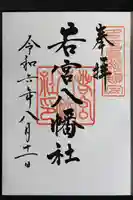 奉拝
若宮八幡社
令和六年八月十一日